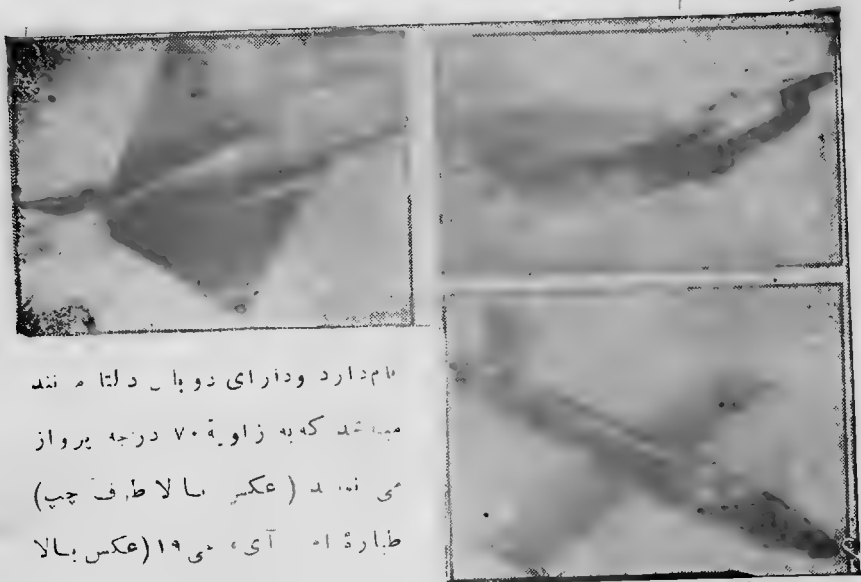 نام دارد و دارای دو بال دلتا مانند
که به زاویهٔ ۷۰ درجه پرواز
می (عکس بالا طرف چپ)
طیارهٔ آی، ۱۹ (عکس بالا